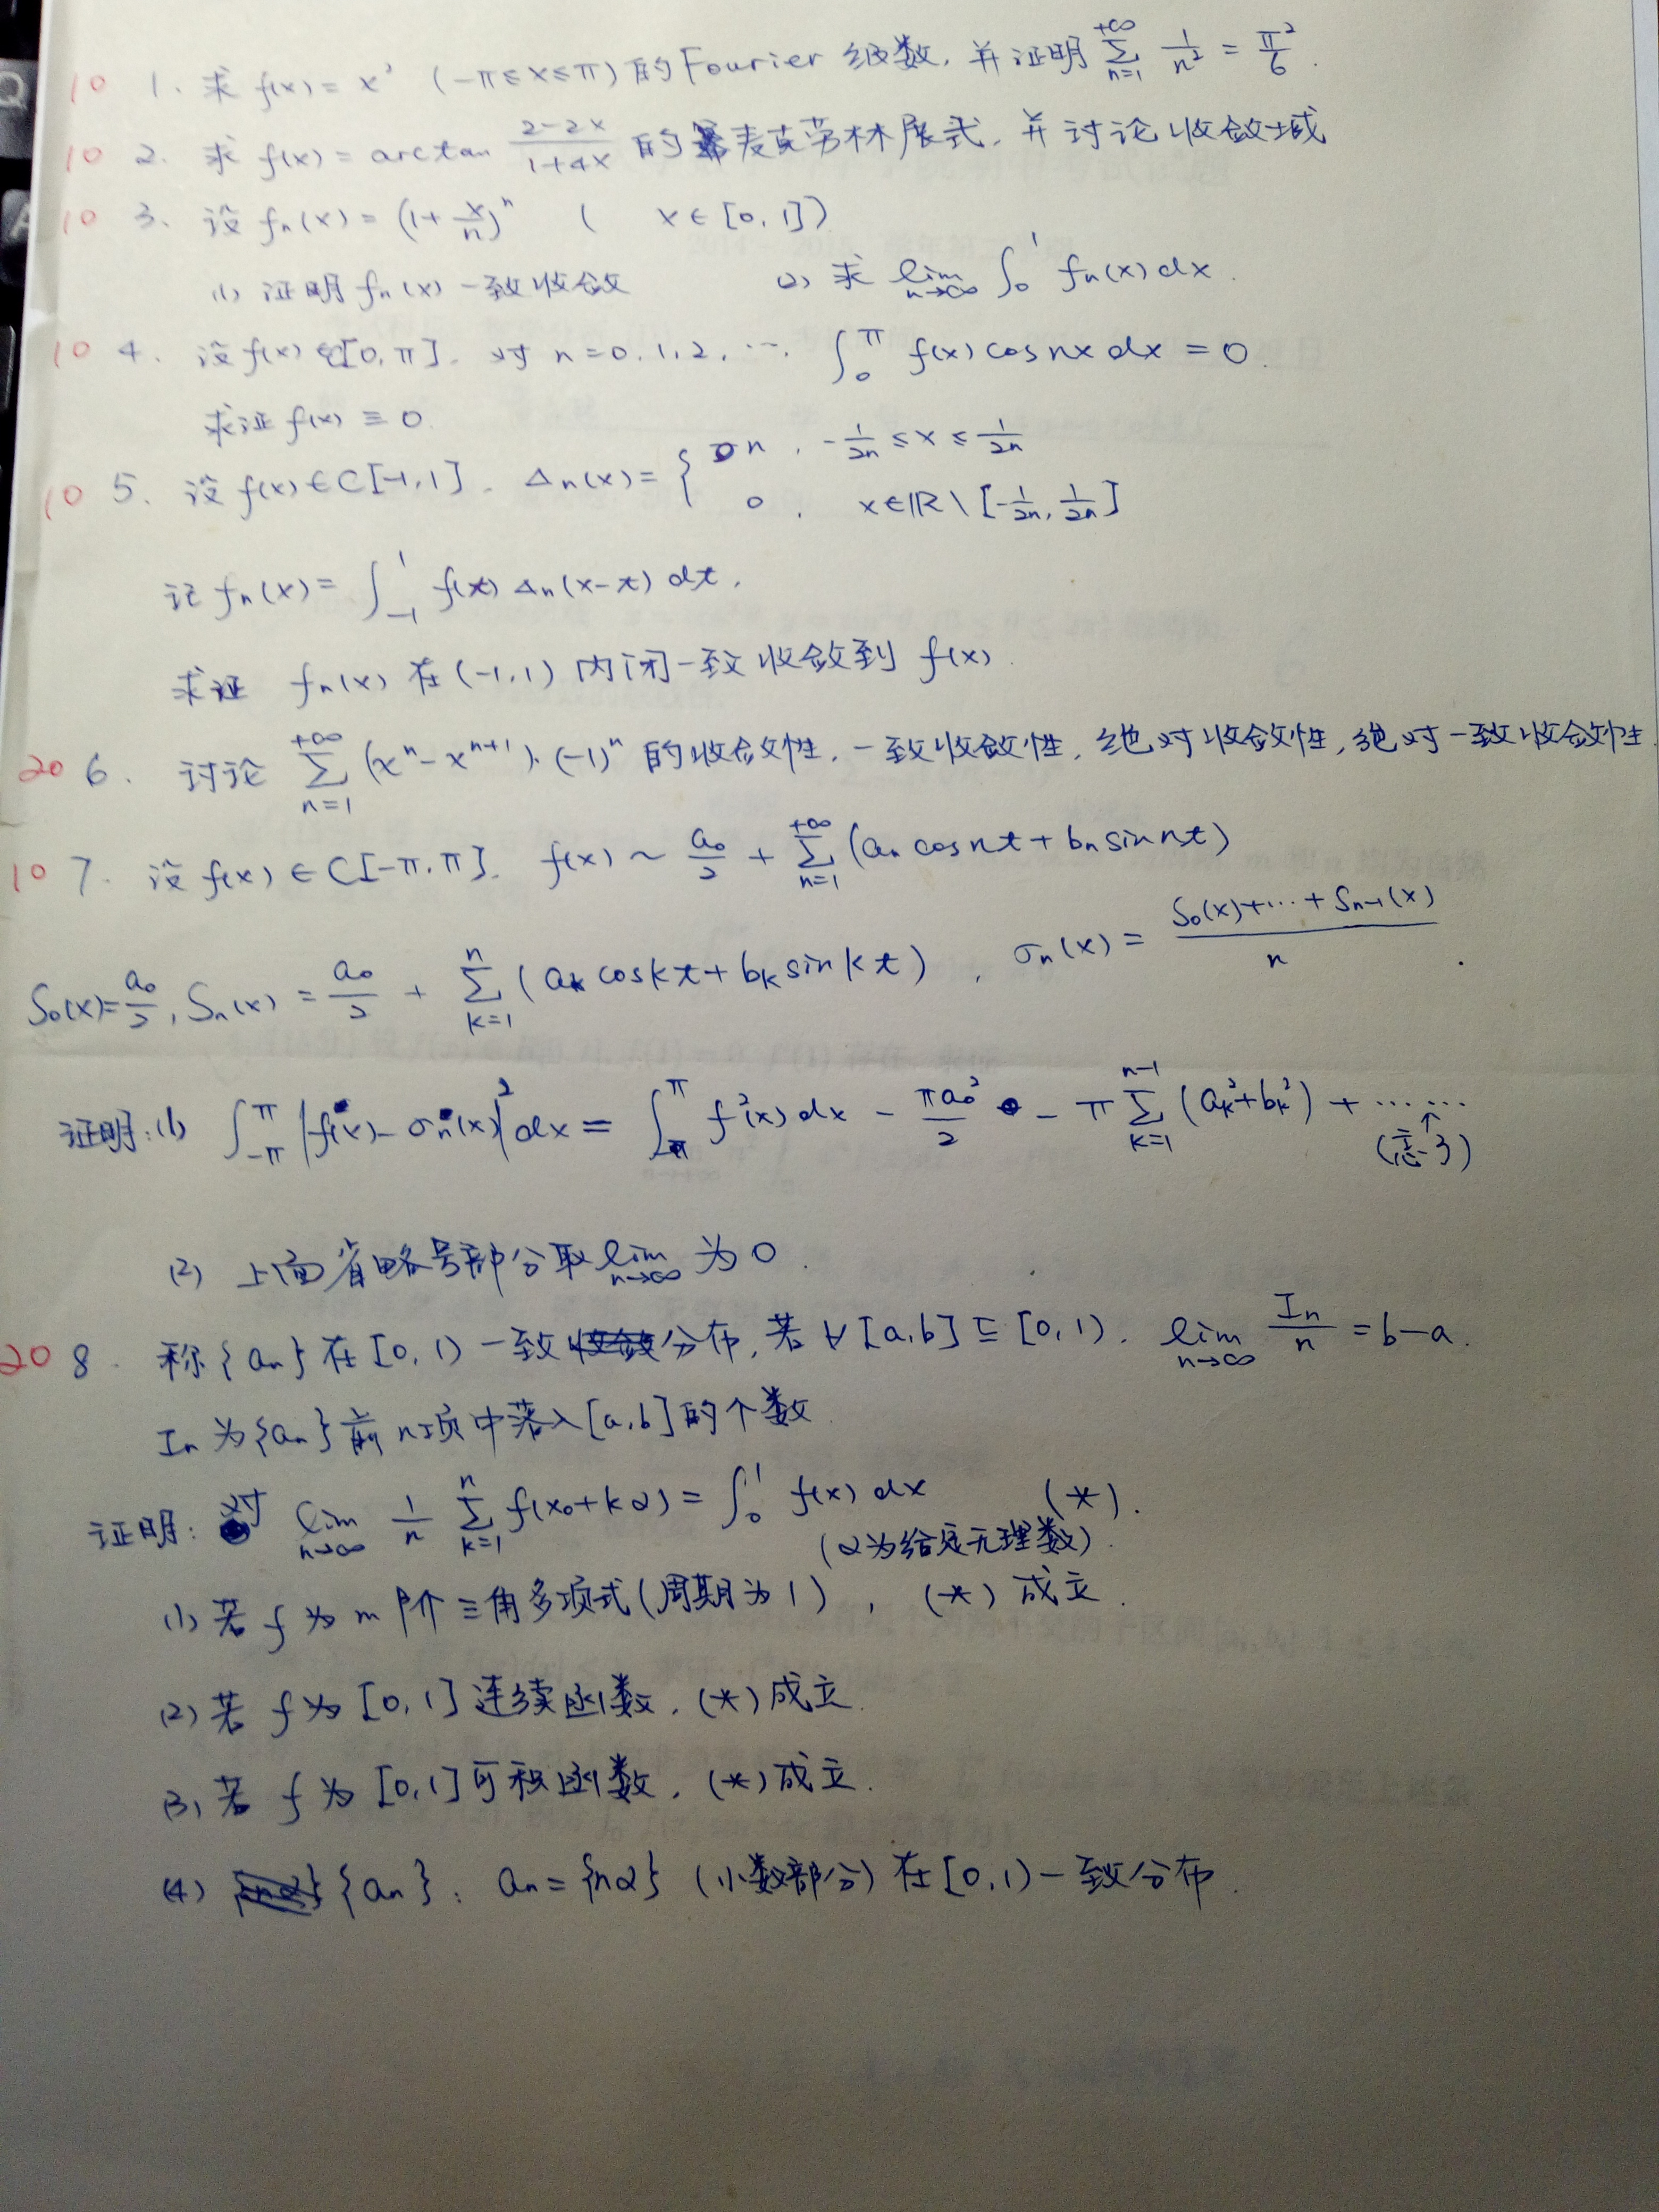 10 1. 求 f(x) = x² (-π≤x≤π) 的 Fourier 级数, 并证明 $\sum_{n=1}^{+\infty} \frac{1}{n^2} = \frac{\pi^2}{6}$.
10 2. 求 f(x) = arctan $\frac{2-2x}{1+4x}$ 的麦克劳林展式, 并讨论收敛域
10 3. 设 f_n(x) = $(1+\frac{x}{n})^n$ ( x∈[0,1])
(1) 证明 f_n(x) 一致收敛 (2) 求 $\lim_{n\to\infty} \int_0^1 f_n(x)dx$.
10 4. 设 f(x)∈[0,π]. 对 n=0,1,2,…, $\int_0^{\pi} f(x)\cos nx dx = 0$.
求证 f(x) ≡ 0.
10 5. 设 f(x)∈C[-1,1]. $\Delta_n(x) = \begin{cases} n, & -\frac{1}{2n} \le x \le \frac{1}{2n} \\ 0, & x∈ℝ\setminus[-\frac{1}{2n}, \frac{1}{2n}] \end{cases}$
记 f_n(x) = $\int_{-1}^{1} f(t)\Delta_n(x-t)dt$,
求证 f_n(x) 在 (-1,1) 内闭一致收敛到 f(x).
20 6. 讨论 $\sum_{n=1}^{+\infty} (x^n - x^{n+1})\cdot(-1)^n$ 的收敛性, 一致收敛性, 绝对收敛性, 绝对一致收敛性
10 7. 设 f(x)∈C[-π,π]. f(x) ~ $\frac{a_0}{2} + \sum_{n=1}^{+\infty} (a_n \cos nt + b_n \sin nt)$
$S_0(x) = \frac{a_0}{2}, S_n(x) = \frac{a_0}{2} + \sum_{k=1}^{n} (a_k \cos kt + b_k \sin kt)$, $\sigma_n(x) = \frac{S_0(x)+\cdots+S_{n-1}(x)}{n}$.
证明: (1) $\int_{-\pi}^{\pi} |f(x) - \sigma_n(x)|^2 dx = \int_{-\pi}^{\pi} f^2(x)dx - \frac{\pi a_0^2}{2} - \pi \sum_{k=1}^{n-1} (a_k^2 + b_k^2) + \cdots\cdots$
↑
(忘了)
(2) 上面省略号部分取 $\lim_{n\to\infty}$ 为 0.
20 8. 称 {a_n} 在 [0,1) 一致分布, 若 ∀[a,b]⊆[0,1). $\lim_{n\to\infty} \frac{I_n}{n} = b-a$.
I_n 为 {a_n} 前 n 项中落入 [a,b] 的个数
证明: 对 $\lim_{n\to\infty} \frac{1}{n} \sum_{k=1}^{n} f(x_0+k\alpha) = \int_0^1 f(x)dx$ (*).
(α为给定无理数).
(1) 若 f 为 m 阶三角多项式 (周期为 1), (*) 成立.
(2) 若 f 为 [0,1] 连续函数, (*) 成立.
(3) 若 f 为 [0,1] 可积函数, (*) 成立.
(4) {a_n}: a_n = {nα} (小数部分) 在 [0,1) 一致分布.